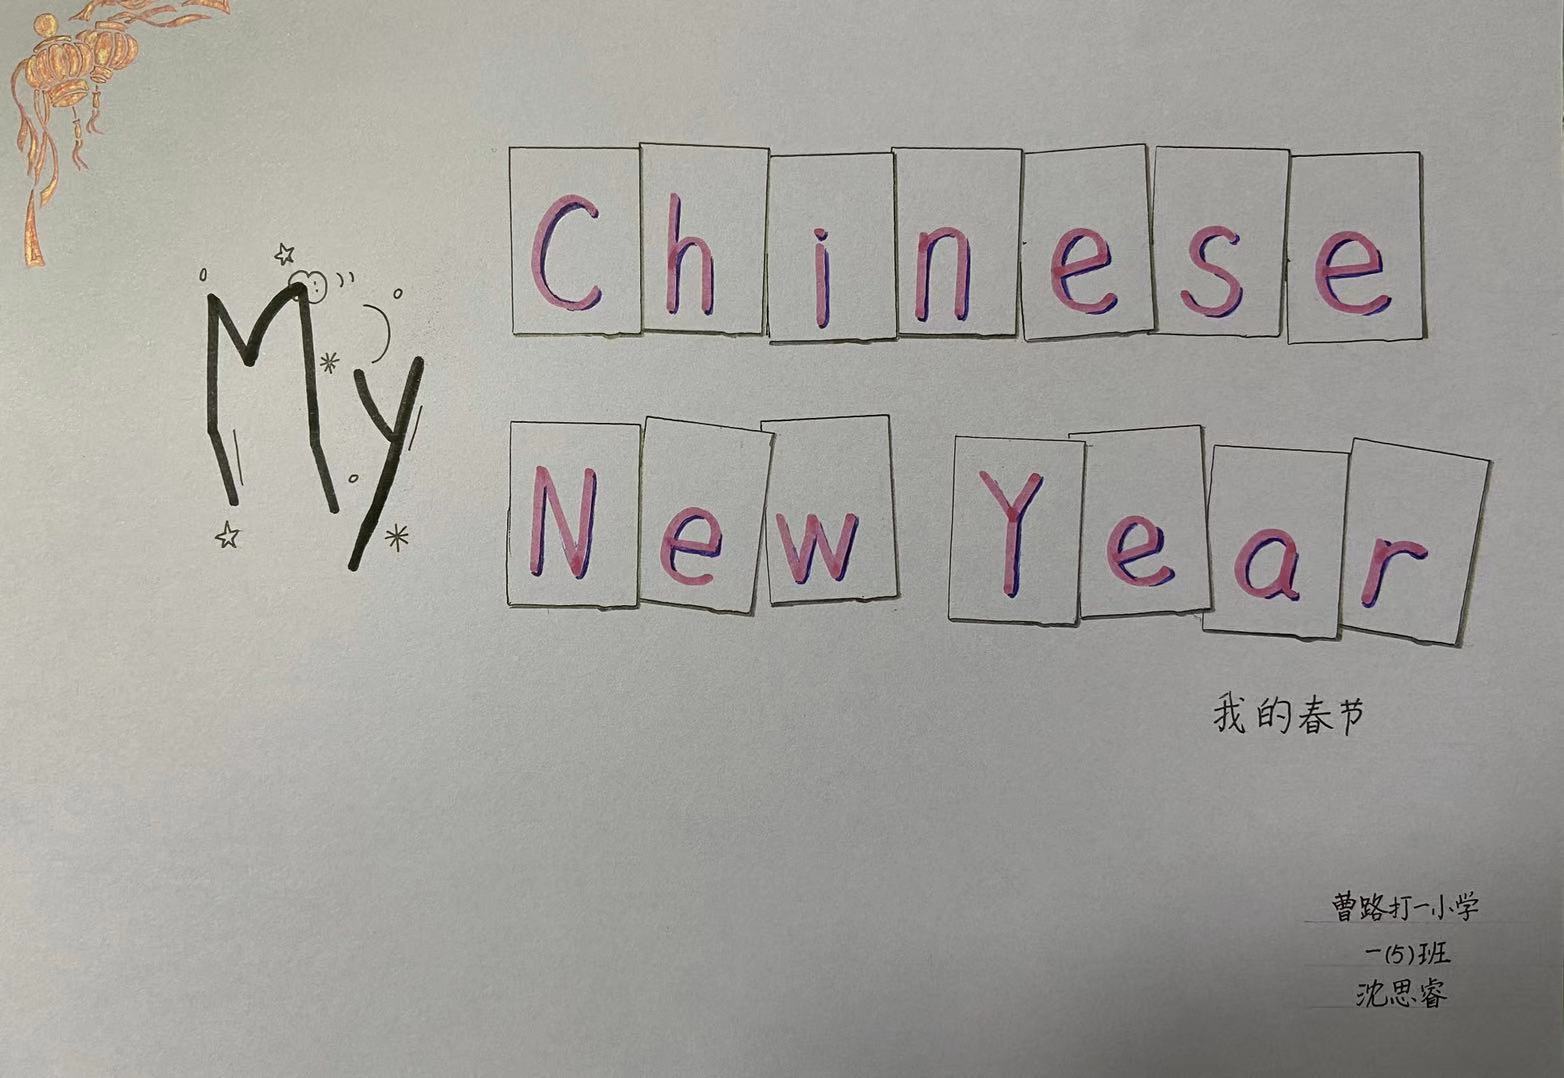 My
Chinese
New Year
我的春节
曹路打一小学
一(5)班
沈思睿